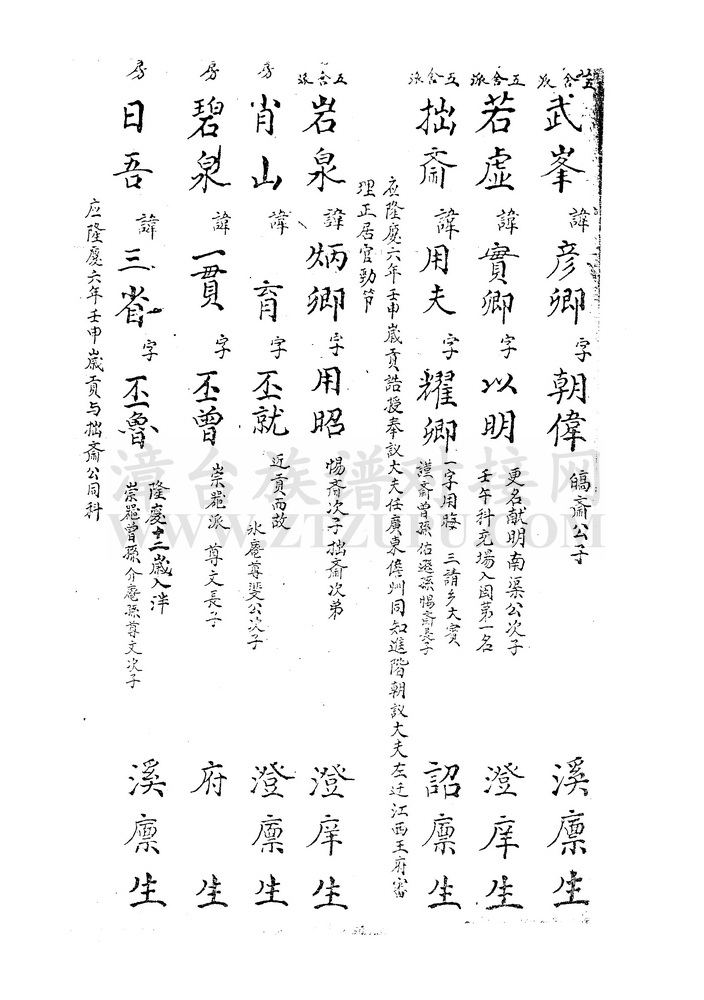 五舍派 武峯 諱 彦卿 字 朝偉 皜齋公子 溪廪生
五舍派 若虛 諱 實卿 字 以明 更名献明南渠公次子 澄庠生
壬午科充場入囯第一名
五舍派 拙斋 諱 用夫 字 耀卿 一字用晦 三請乡大賓 詔廪生
謹斋曽孫佑遜孫惕斋長子
应隆慶六年壬申歲貢誥授奉議大夫任廣東儋州同知進階朝議大夫左迁江西王府審
理正居官勁节
五舍派 岩泉 諱 炳卿 字 用昭 惕斋次子拙斋次弟 澄庠生
房 肖山 諱 育 字 丕就 近貢而故 澄廪生
氷菴尊斐公次子
房 碧泉 諱 一貫 字 丕曾 崇羆派 尊文長子 府生
房 日吾 諱 三省 字 丕魯 隆慶十二歲入泮 溪廪生
崇羆曾孫介菴孫尊文次子
应隆慶六年壬申歲貢与拙斋公同科
漳台族谱对接网
WWW.ZTZUPU.COM